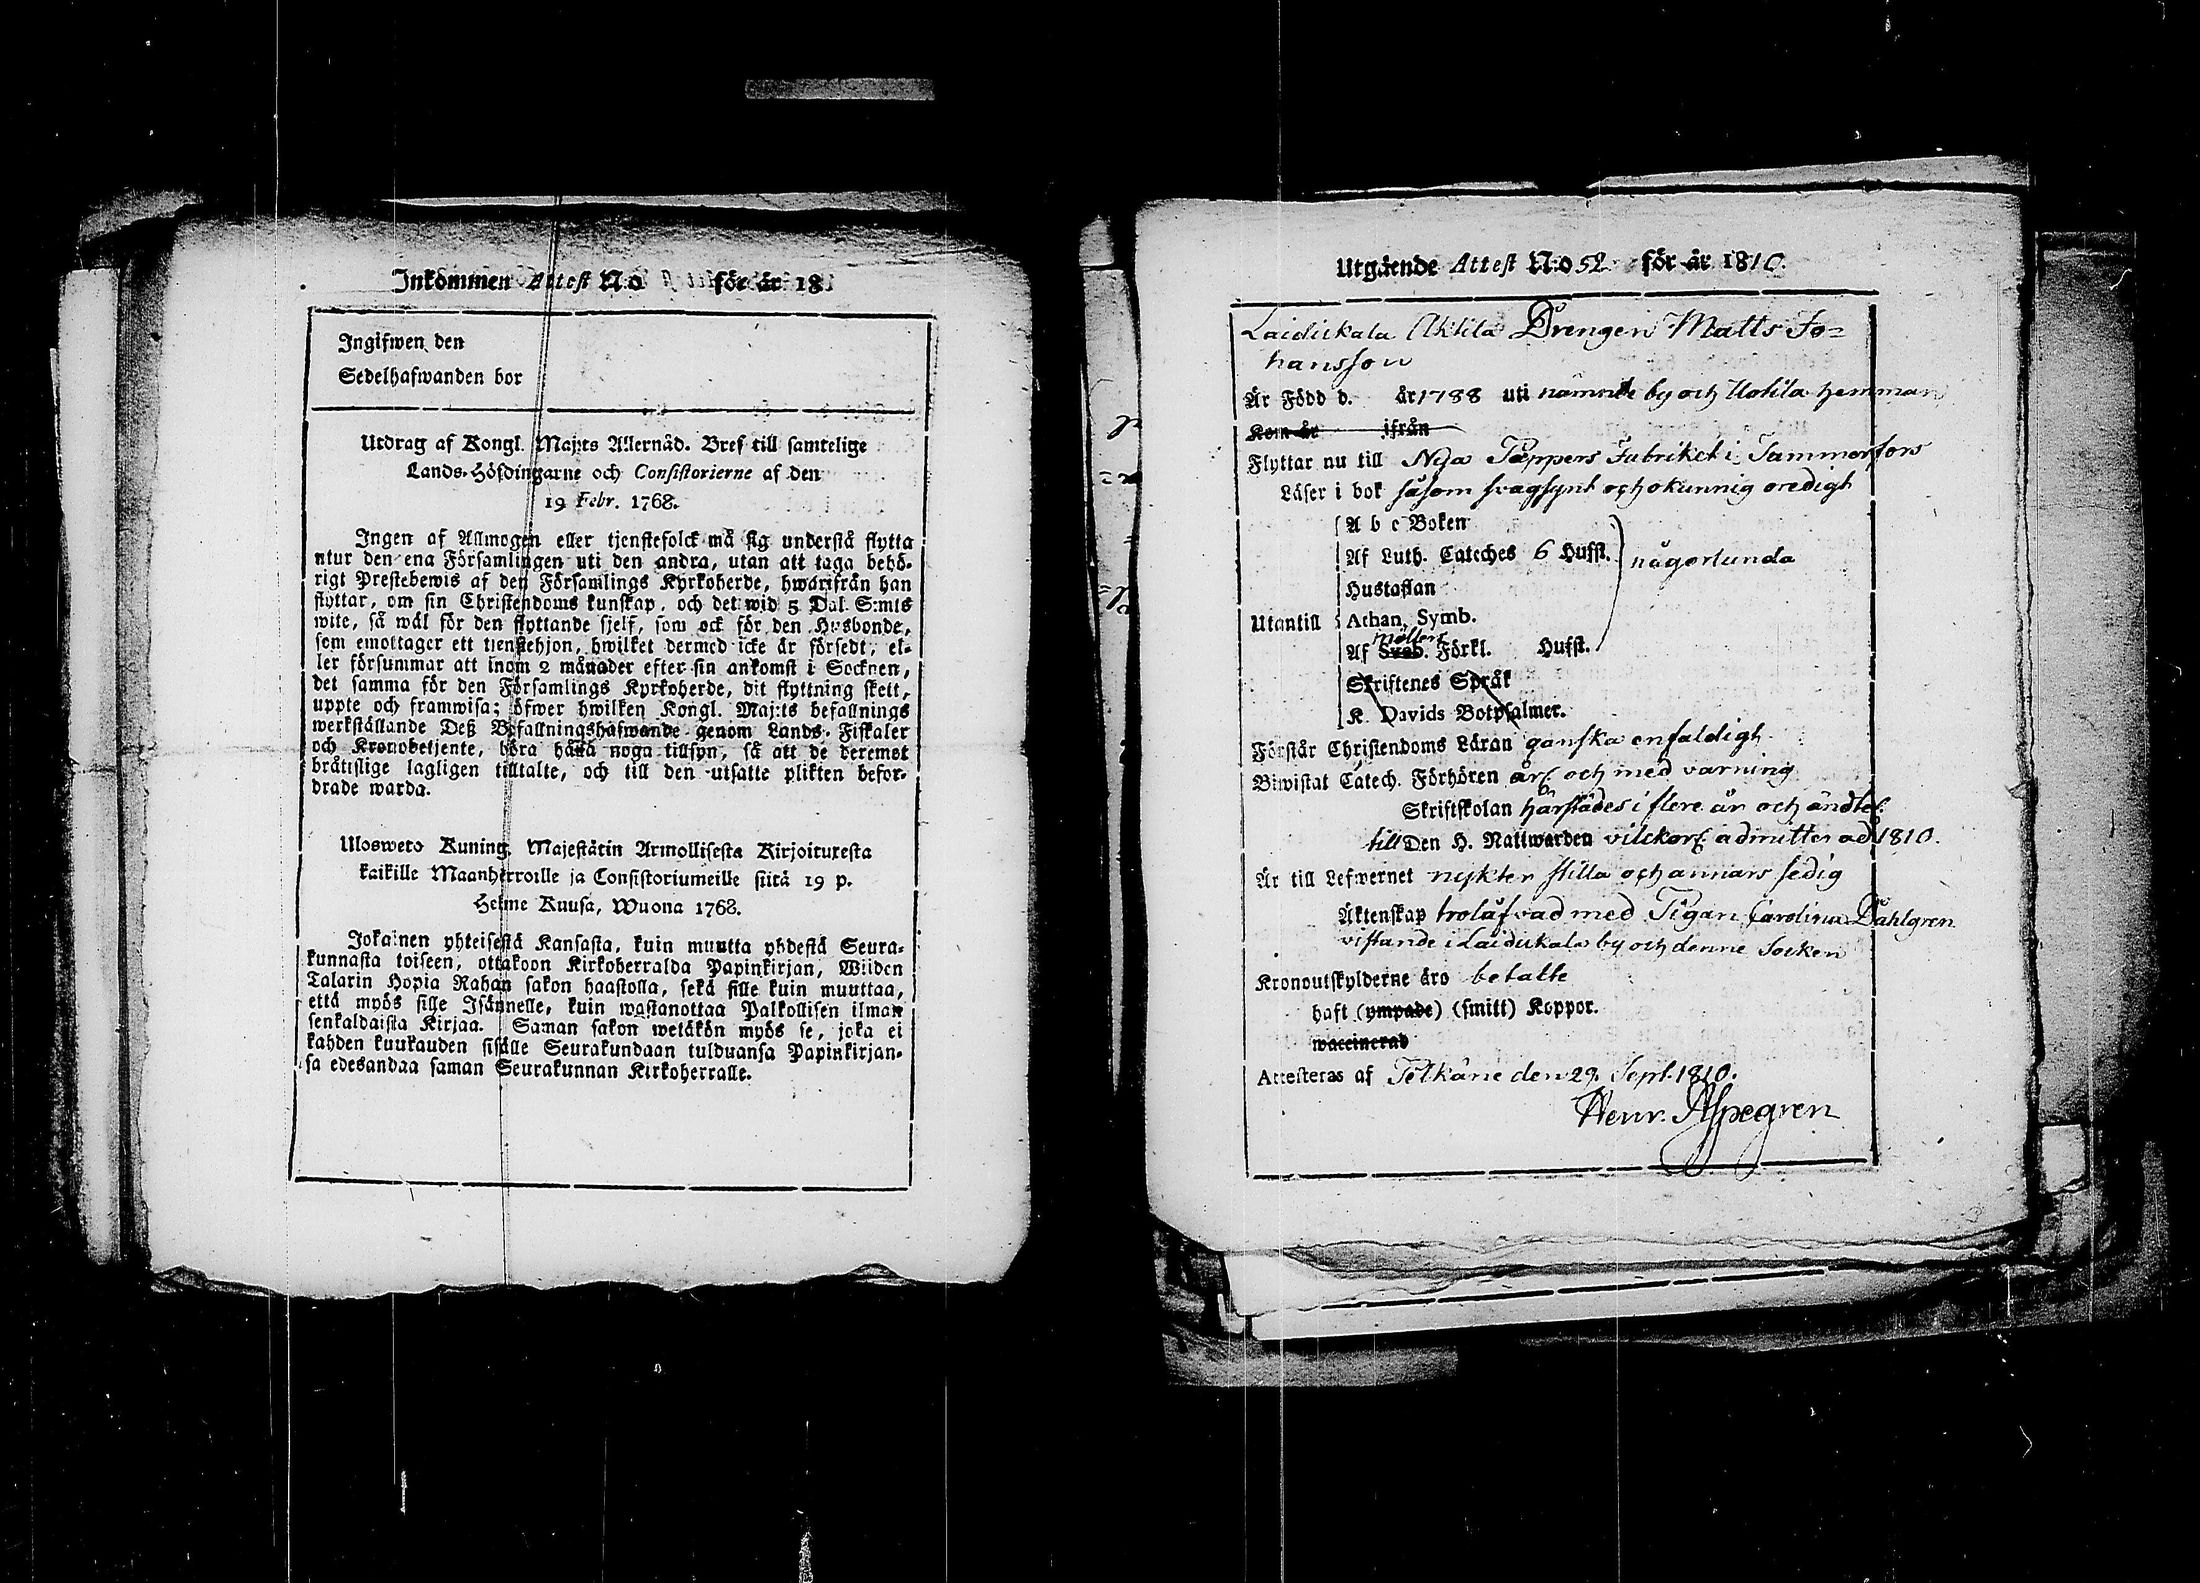 Inkommen Attest N:o för år 18
Ingifwen den
Sedelhafwanden bor
Utdrag af Kongl. Maj:ts Allernåd. Bref till samtelige
Lands-Höfdingarne och Consistorierne af den
19 Febr. 1768.
Ingen af Allmogen eller tjenstefolck må sig understå flytta
utur den ena Församlingen uti den andra, utan att taga behö-
rigt Prestebewis af den Församlings Kyrkoherde, hwarifrån han
flyttar, om sin Christendoms kunskap, och det wid 5 Dal. S:mts
wite, så wäl för den flyttande sjelf, som ock för den Husbonde,
som emottager ett tjenstehjon, hwilket dermed icke är försedt, el-
ler försummar att inom 2 månader efter sin ankomst i Socknen,
det samma för den Församlings Kyrkoherde, dit flyttning skett,
uppte och framwisa; öfwer hwilken Kongl. Maj:ts befallnings
werkställande Deß Befallningshafwande genom Lands-Fiskaler
och Kronobetjente, böra hålla noga tillsyn, så att de deremot
bråttslige lagligen tilltalte, och till den utsatte plikten befor-
drade warda.
Ulosweto Kuning. Majestätin Armollisesta Kirjoituxesta
kaikille Maanherroille ja Consistoriumeille siitä 19 p.
Helme Kuusa, Wuona 1768.
Jokainen yhteisestä Kansasta, kuin muutta yhdestä Seura-
kunnasta toiseen, ottakoon Kirkoherralda Papinkirjan, Wiiden
Talarin Hopia Rahan sakon haastolla, sekä sille kuin muuttaa,
että myös sille Isännelle, kuin wastanottaa Palkollisen ilman
senkaldaista Kirjaa. Saman sakon wetäkön myös se, joka ei
kahden kuukauden sisälle Seurakundaan tulduansa Papinkirjan-
sa edesandaa saman Seurakunnan Kirkoherralle.
Utgående Attest N:o 52 för år 1810.
Laidickala Uotila Drengen Matts Jo=
hansson
Är Född d. år 1788 uti nämnde by och Uotila hemman
Kom år ifrån
Flyttar nu till Nya Pappers Fabriket i Tammerfors
Läser i bok såsom svagsynt och okunnig oredigt
A b c Boken
Af Luth. Cateches 6 Hufst. någorlunda
Hustaflan
Utantill Athan. Symb.
Möllers
Af Sveb. Förkl. Hufst.
Skriftenes Språk
K. Davids Botpsalmer.
Förstår Christendoms Läran ganska enfaldigt
Biwistat Catech. Förhören årl. och med varning
Skriftskolan härstädes i flere år och ändtel.
till Den H. Nattwarden vilckorl. admitterad 1810.
Är till Lefwernet nykter stilla och annars sedig
Äktenskap trolåfvad med Pigan Carolina Dahlgren
vistande i Laidickala by och denne Socken
Kronoutskylderne äro betalte
haft (ympade) (smitt) Koppor.
waccinerad
Attesteras af Pelkäne den 29. Sept. 1810.
Henr. Aspegren